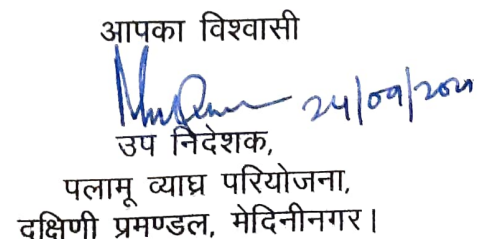 आपका विश्वासी
24/09/2021
उप निदेशक,
पलामू व्याघ्र परियोजना,
दक्षिणी प्रमण्डल, मेदिनीनगर।